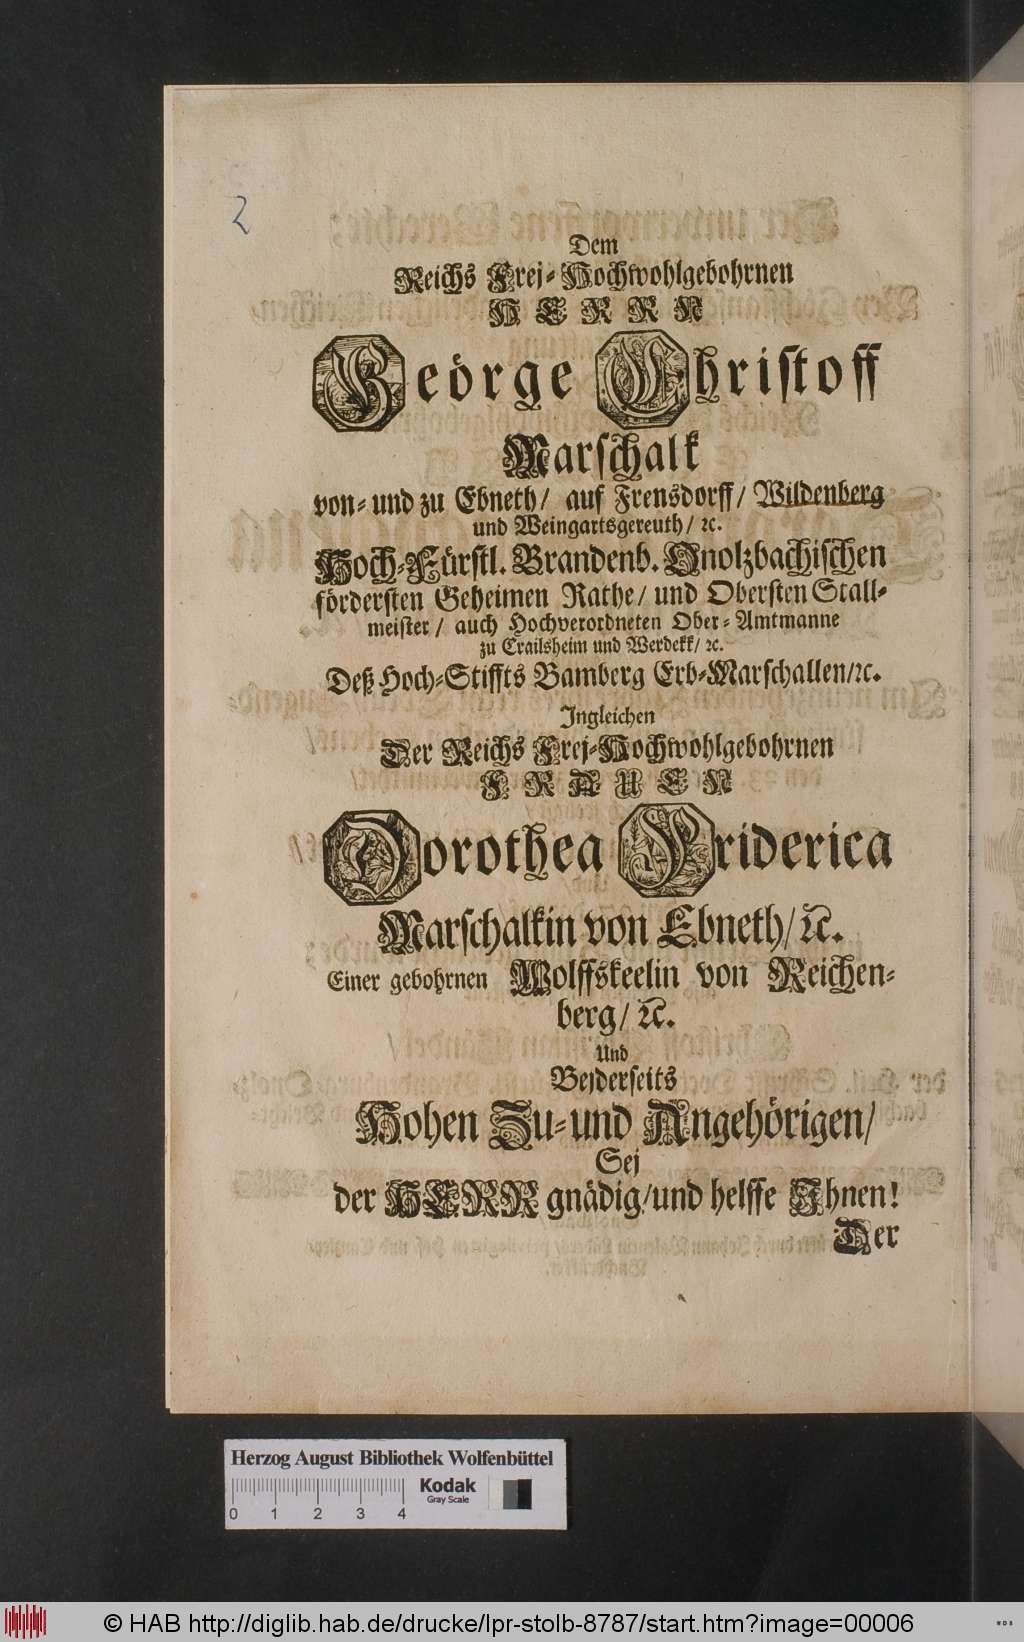 2
Dem
Reichs Frej-Hochwohlgebohrnen
HERRN
Geörge Christoff
Marschalk
von- und zu Ebneth/ auf Frensdorff/ Wildenberg
und Weingartsgereuth/ ꝛc.
Hoch-Fürstl. Brandenb. Onolzbachischen
fördersten Geheimen Rathe/ und Obersten Stall-
meister/ auch Hochverordneten Ober-Amtmanne
zu Crailsheim und Werdekk/ ꝛc.
Deß Hoch-Stiffts Bamberg Erb-Marschallen/ꝛc.
Ingleichen
Der Reichs Frej-Hochwohlgebohrnen
FRAUEN
Dorothea Friderica
Marschalkin von Ebneth/ ꝛc.
Einer gebohrnen Wolffskeelin von Reichen-
berg/ ꝛc.
Und
Bejderseits
Hohen Zu- und Angehörigen/
Sej
der HERR gnädig/und helffe Ihnen!
Der
Herzog August Bibliothek Wolfenbüttel
Kodak
Gray Scale
0 1 2 3 4
© HAB http://diglib.hab.de/drucke/lpr-stolb-8787/start.htm?image=00006